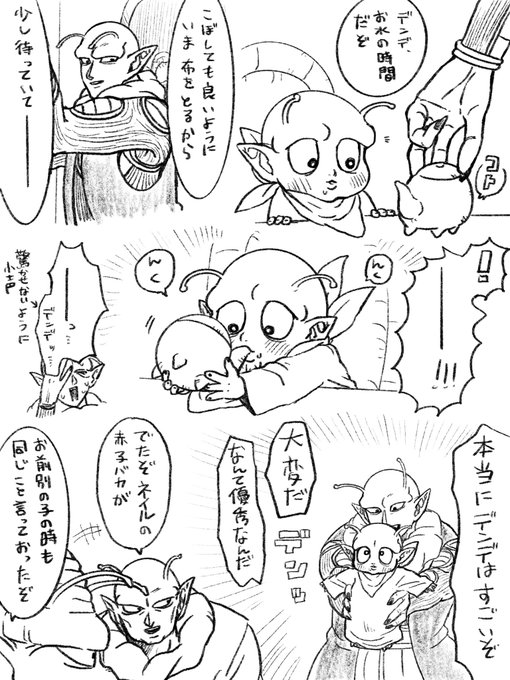 デンデ、
お水の時間
だぞ
コト
こぼしても良いように
いま布をとるから
少し待っていて
———
!!
———!!!
んく
んく
———っ
デンデッ
驚かせないように
小声
本当にデンデはすごいぞ
大変だ
なんて優秀なんだ
デンッ
でたぞネイルの
赤子バカが
お前別の子の時も
同じこと言っておったぞ